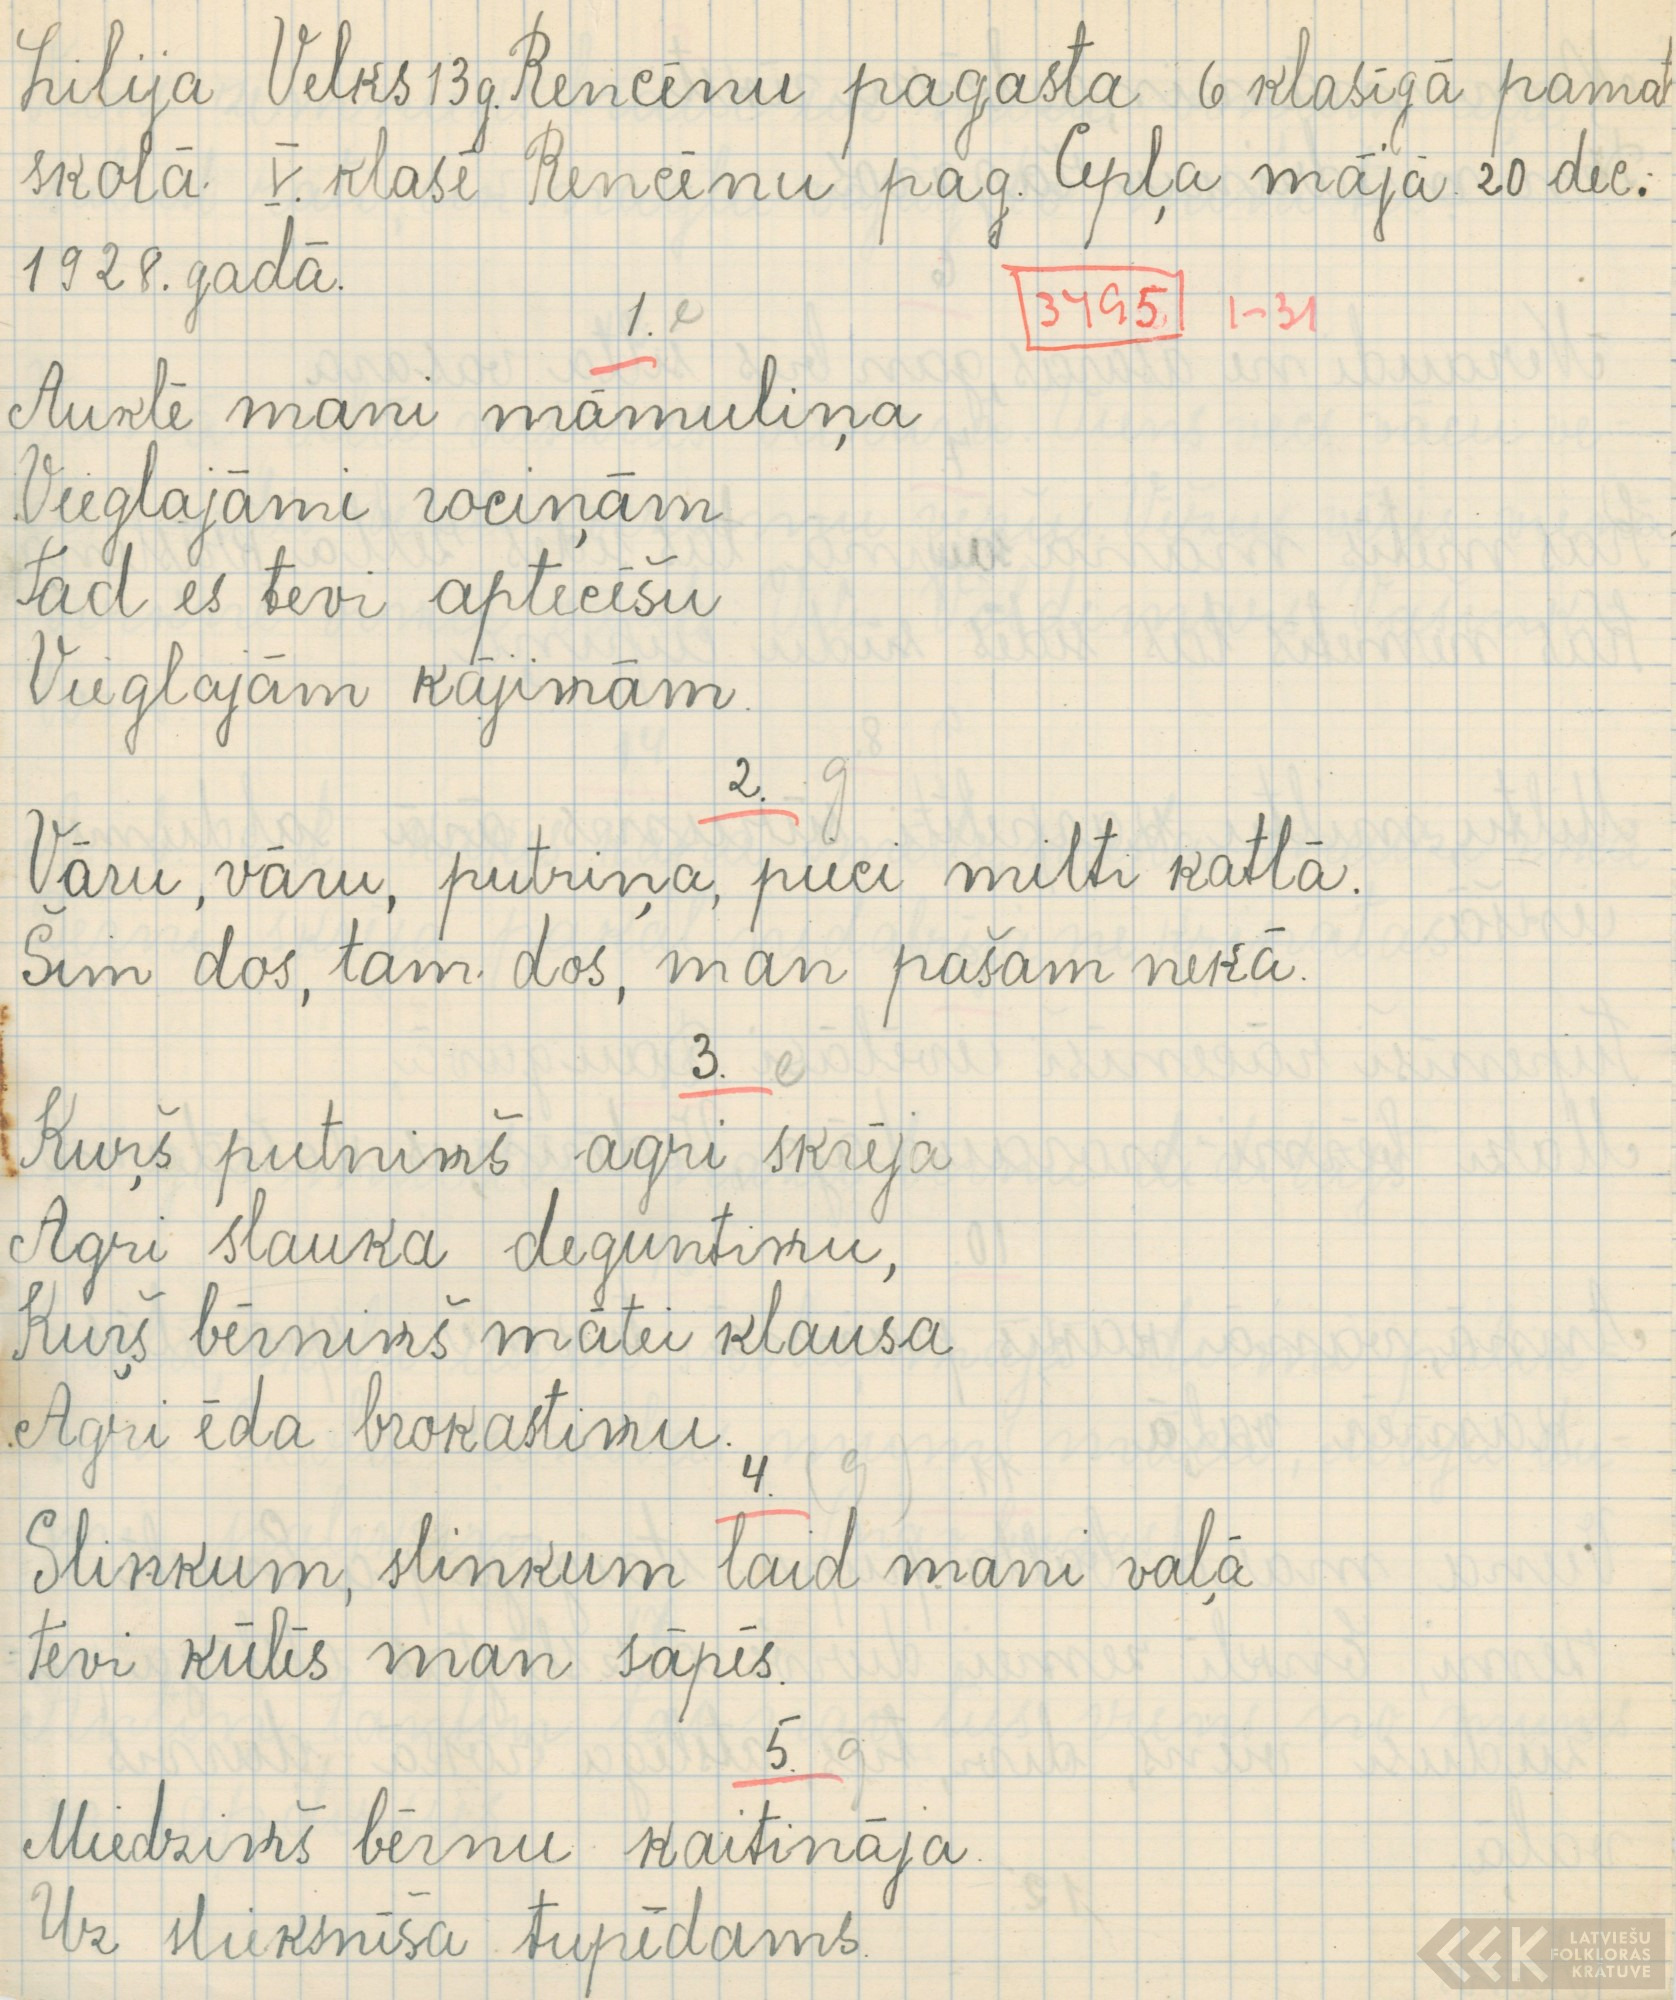 Lilija Velks 13g. Rencēnu pagasta 6 klasīgā pamat
skolā. V. klasē Rencēnu pag. Cepļa mājā. 20 dec.
1928. gadā.
3495 1-31
1. e
Auklē mani māmuliņa
Vieglajāmi rociņām
Tad es tevi aptecēšu
Vieglajām kājiņām.
2. g
Vāru, vāru, putriņa, pieci milti katlā.
Šim dos, tam dos, man pašam nekā.
3. e
Kuŗš putniņš agri skrēja
Agri slauka deguntiņu,
Kuŗš bērniņš mātei klausa
Agri ēda brokastiņu.
4. (g)
Slinkum, slinkum laid mani vaļā
Tevi kūlēs man sāpēs.
5. g
Miedziņš bērnu kaitināja
Uz slieksnīša tupēdams.
LATVIEŠU
FOLKLORAS
KRĀTUVE